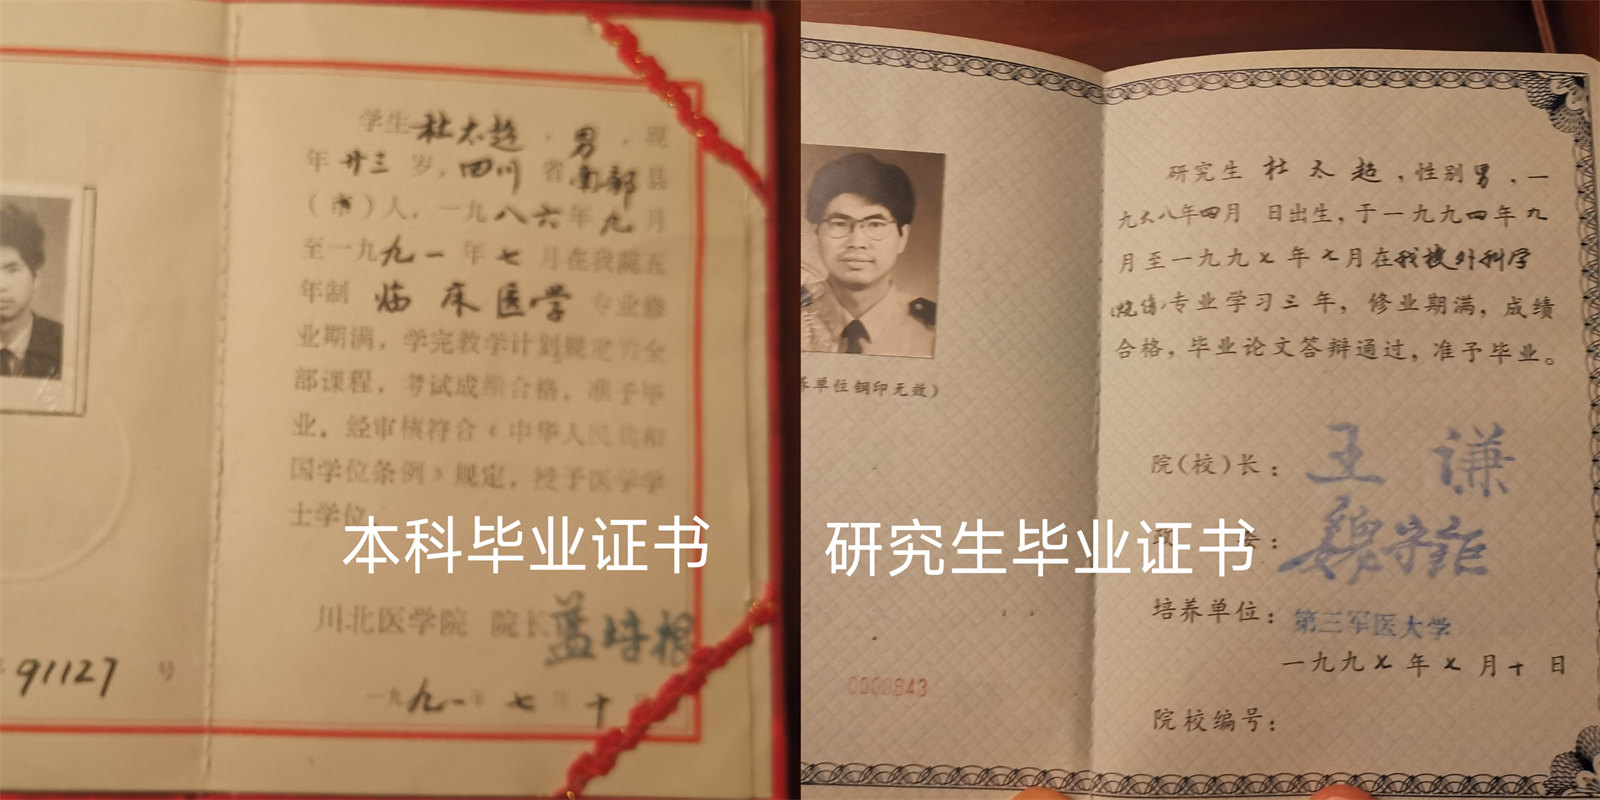 学生杜太超，男，现
年廿三岁，四川省南部县
（市）人，一九八六年九月
至一九九一年七月在我院五
年制 临床医学 专业修
业期满，学完教学计划规定的全
部课程，考试成绩合格，准予毕
业。经审核符合《中华人民共和
国学位条例》规定，授予医学学
士学位
本科毕业证书
川北医学院 院长 蓝培根
91127 号
一九九一年七月十日
研究生 杜太超，性别男，一
九六八年四月 日出生，于一九九四年九
月至一九九七年七月在我校外科学
专业学习三年，修业期满，成绩
合格，毕业论文答辩通过，准予毕业。
养单位钢印无效）
院（校）长：王谦
研究生毕业证书
政 委：魏
培养单位：第三军医大学
一九九七年七月十日
0000643
院校编号：